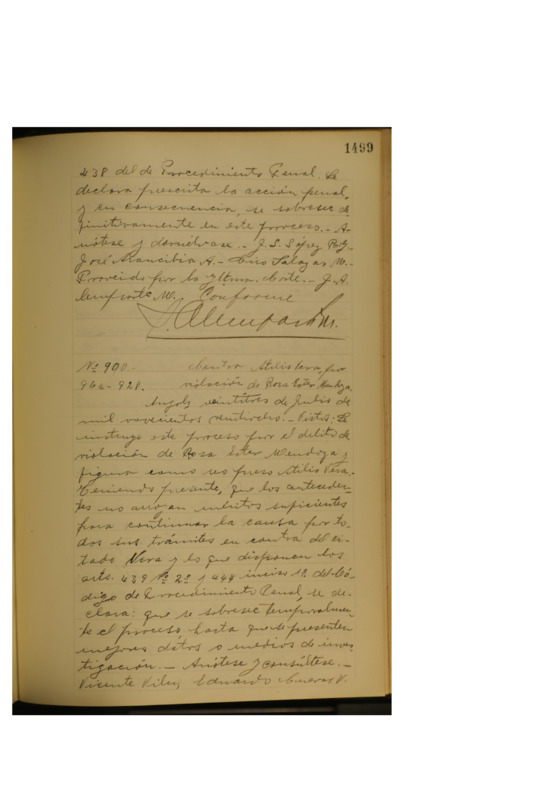 1499
438 del de Procedimiento Penal. Se
declara prescrita la acción penal,
y en consecuencia, se sobresee de
finitivamente en este proceso. - A-
nótese y devuélvase. - J. S. López
José Arancibia A. - Luis Salazar M. -
Proveido por la Iltma. Corte. - J. A.
W. Conforme
No 900. Contra Atilio Vera, por
violación de Rosa Ester Mendoza.
Angol, veintitres de Junio de
mil novecientos veintiocho. - Vistos: Se
instruyó este proceso por el delito de
violación de Rosa Ester Mendoza y
figura como reo preso Atilio Vera.
Teniendo presente, que los anteceden-
tes no arrojan méritos suficientes
para continuar la causa por to-
dos sus trámites en contra del ci-
tado Vera y lo que disponen los
arts. 439 No 2o y 444 inciso 1o del Có-
digo de Procedimiento Penal, se de-
clara: que se sobresee temporalmen-
te el proceso, hasta que se presenten
mejores datos o medios de inves
tigación. - Anótese y consúltese. -
Vicente Eduardo Cuevas V.